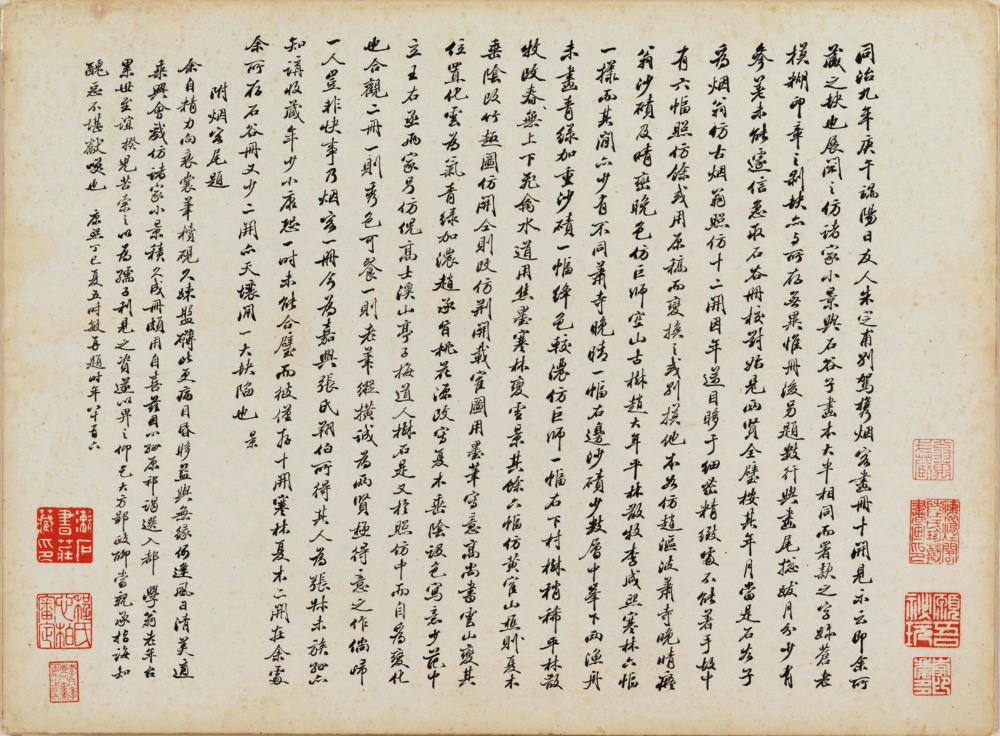 同治九年庚午端陽日友人朱定甫別駕攜烟客畫冊十開見示云即余所
藏之缺也展閱之仿諸家小景與石谷子畫本大半相同而署款之字跡蒼老
模糊印章之剝缺亦與所存無異惟冊後另題數行與畫尾總跋月分少有
參差未能遽信急取石谷冊校對始是兩賢全璧按其年月當是石谷子
為烟翁仿古烟翁照仿十二開因年邁目眵于細密精緻處不能著手故中
有六幅照仿餘或用原稿而變換之或別摸他本如仿趙漚波蕭寺晚晴癡
翁沙磧及晴巒晚色仿巨師空山古樹趙大年平林散牧李咸熙寒林六幅
一樣而其間亦少有不同蕭寺晚晴一幅右邊沙磧少數層中筆下兩漁舟
未畫青綠加重沙磧一幅絳色較濃仿巨師一幅右下村樹稍稀平林散
牧改春無上下飛禽水道用焦墨寒林變雪景其餘六幅仿黃雀山樵則夏木
垂陰改竹趣圖仿關仝則改仿荊關載雀圖用墨筆寫意高尚書雲山變其
位置化雲為氣青綠加濃趙承旨桃花源改寫夏木垂陰設色寫意少花中
立王右丞兩家另仿倪高士溪山亭子梅道人樹石是又於照仿中而自為變化
也合觀二冊一則秀色可餐一則老筆縱橫誠為兩賢極得意之作倘時
一人豈非快事乃烟客一冊今為嘉興張氏翔伯所得其人為張叔未族孫亦
知講收藏年少小康恐一時未能合璧而彼僅存十開寒林夏木二開在余處
余所存石谷冊又少二開亦天壤間一大缺陷也 景
附烟客尾題
余自精力向衰棠筆積硯久疎盤礴此更病目昏眵益與無緣何逢風日清美適
乘興會戲仿諸家小景積久成冊頗用自喜茲因小孫原祁謁選入都 學翁老年台
累世至誼揆兒苦索之以為孺子利見之資遂以畀之仰乞大方郢政聊當親承指誨知
醜惡不堪獻嗅也 康熙丁巳夏五時敏再題時年八十有六
漱石書莊藏印
程氏心柏審定
顧吾秋坡